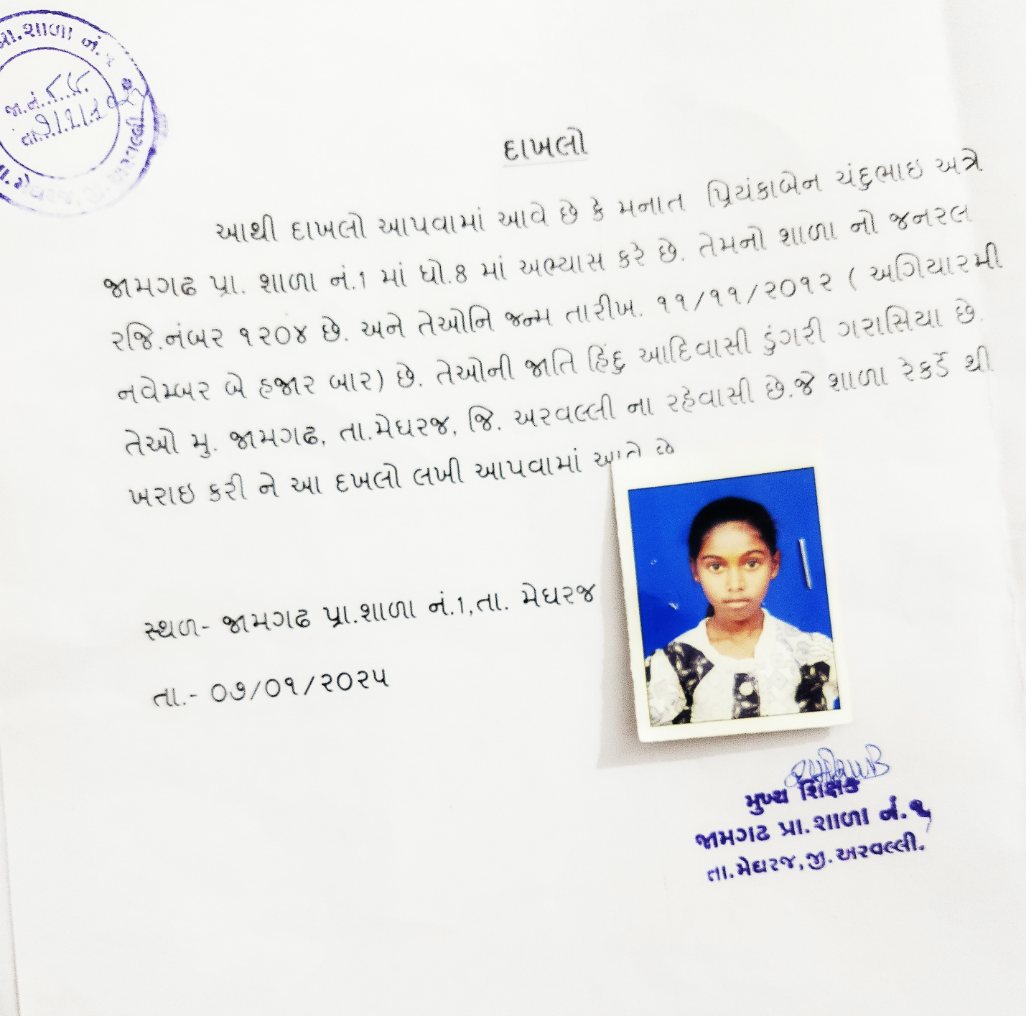 પ્રા.શાળા નં.
જા.નં.
તા.
દાખલો
આથી દાખલો આપવામાં આવે છે કે મનાત પ્રિયંકાબેન ચંદુભાઇ અત્રે
જામગઢ પ્રા. શાળા નં.1 માં ધો.8 માં અભ્યાસ કરે છે. તેમનો શાળા નો જનરલ
રજિ.નંબર ૧૨૦૪ છે. અને તેઓનિ જન્મ તારીખ. ૧૧/૧૧/૨૦૧૨ ( અગિયારમી
નવેમ્બર બે હજાર બાર) છે. તેઓની જાતિ હિંદુ આદિવાસી ડુંગરી ગરાસિયા છે.
તેઓ મુ. જામગઢ, તા.મેઘરજ, જિ. અરવલ્લી ના રહેવાસી છે.જે શાળા રેકર્ડ થી
ખરાઇ કરી ને આ દખલો લખી આપવામાં આવે છે
સ્થળ- જામગઢ પ્રા.શાળા નં.1,તા. મેઘરજ
તા.- ૦૭/૦૧/૨૦૨૫
મુખ્ય શિક્ષક
જામગઢ પ્રા.શાળા નં.૧
તા.મેઘરજ,જી.અરવલ્લી.